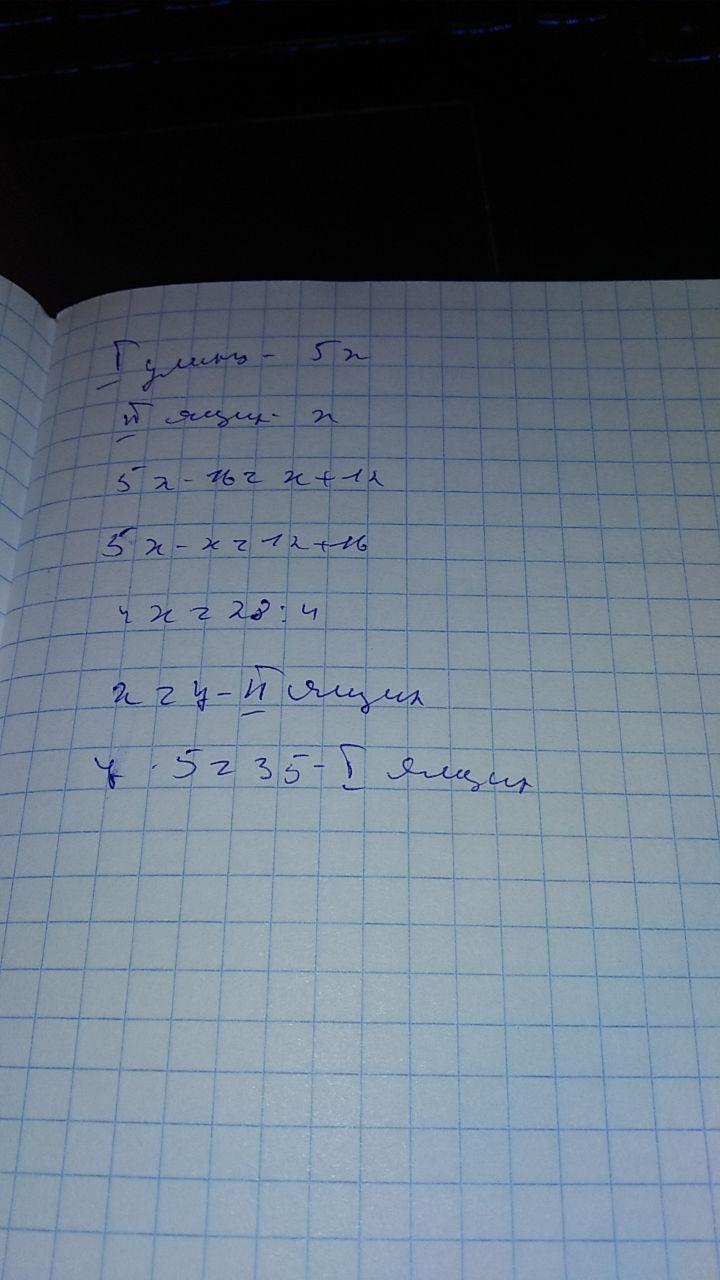 I улик - 5x
II ящик - x
5x - 16 = x + 12
5x - x = 12 + 16
4x = 28 : 4
x = 7 - II ящик
7 · 5 = 35 - I ящик